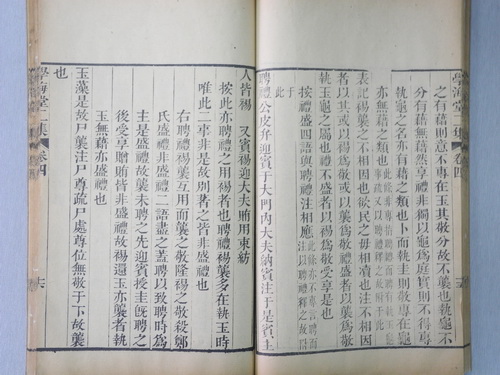 學海堂二集 卷四
之有藉則意不專在玉其敬分故不襲也執龜不
分有藉無藉然享禮非獨以龜爲庭實則不得專
執龜之名亦有藉之類也卜而執圭則敬專在龜
表記裼襲之不相因也欲民之毋相瀆也注不相因
者以其或以裼爲敬或以襲爲敬禮盛者以襲爲敬
執玉龜之屬也禮不盛者以裼爲敬受享是也
按禮盛四語與聘禮注相應
此
聘禮公皮弁迎賓于大門內大夫納賓注于是賓上
人皆裼 又賓裼迎大夫賄用束紡
按此亦聘禮之用裼者也聘禮裼襲多在執玉時
唯此二事非是故別著之皆非盛禮也
右聘禮裼襲互用而襲之敬隆裼之敬殺鄭
氏盛禮二語盡之蓋聘以致聘時爲
盛禮故襲未聘之先迎賓授圭旣聘之
後受享贈賄皆非盛禮故裼還玉亦襲者執
玉無藉亦盛禮也
玉藻是故尸襲注尸尊疏尸處尊位無敬于下故襲
也
學海堂二集 卷四